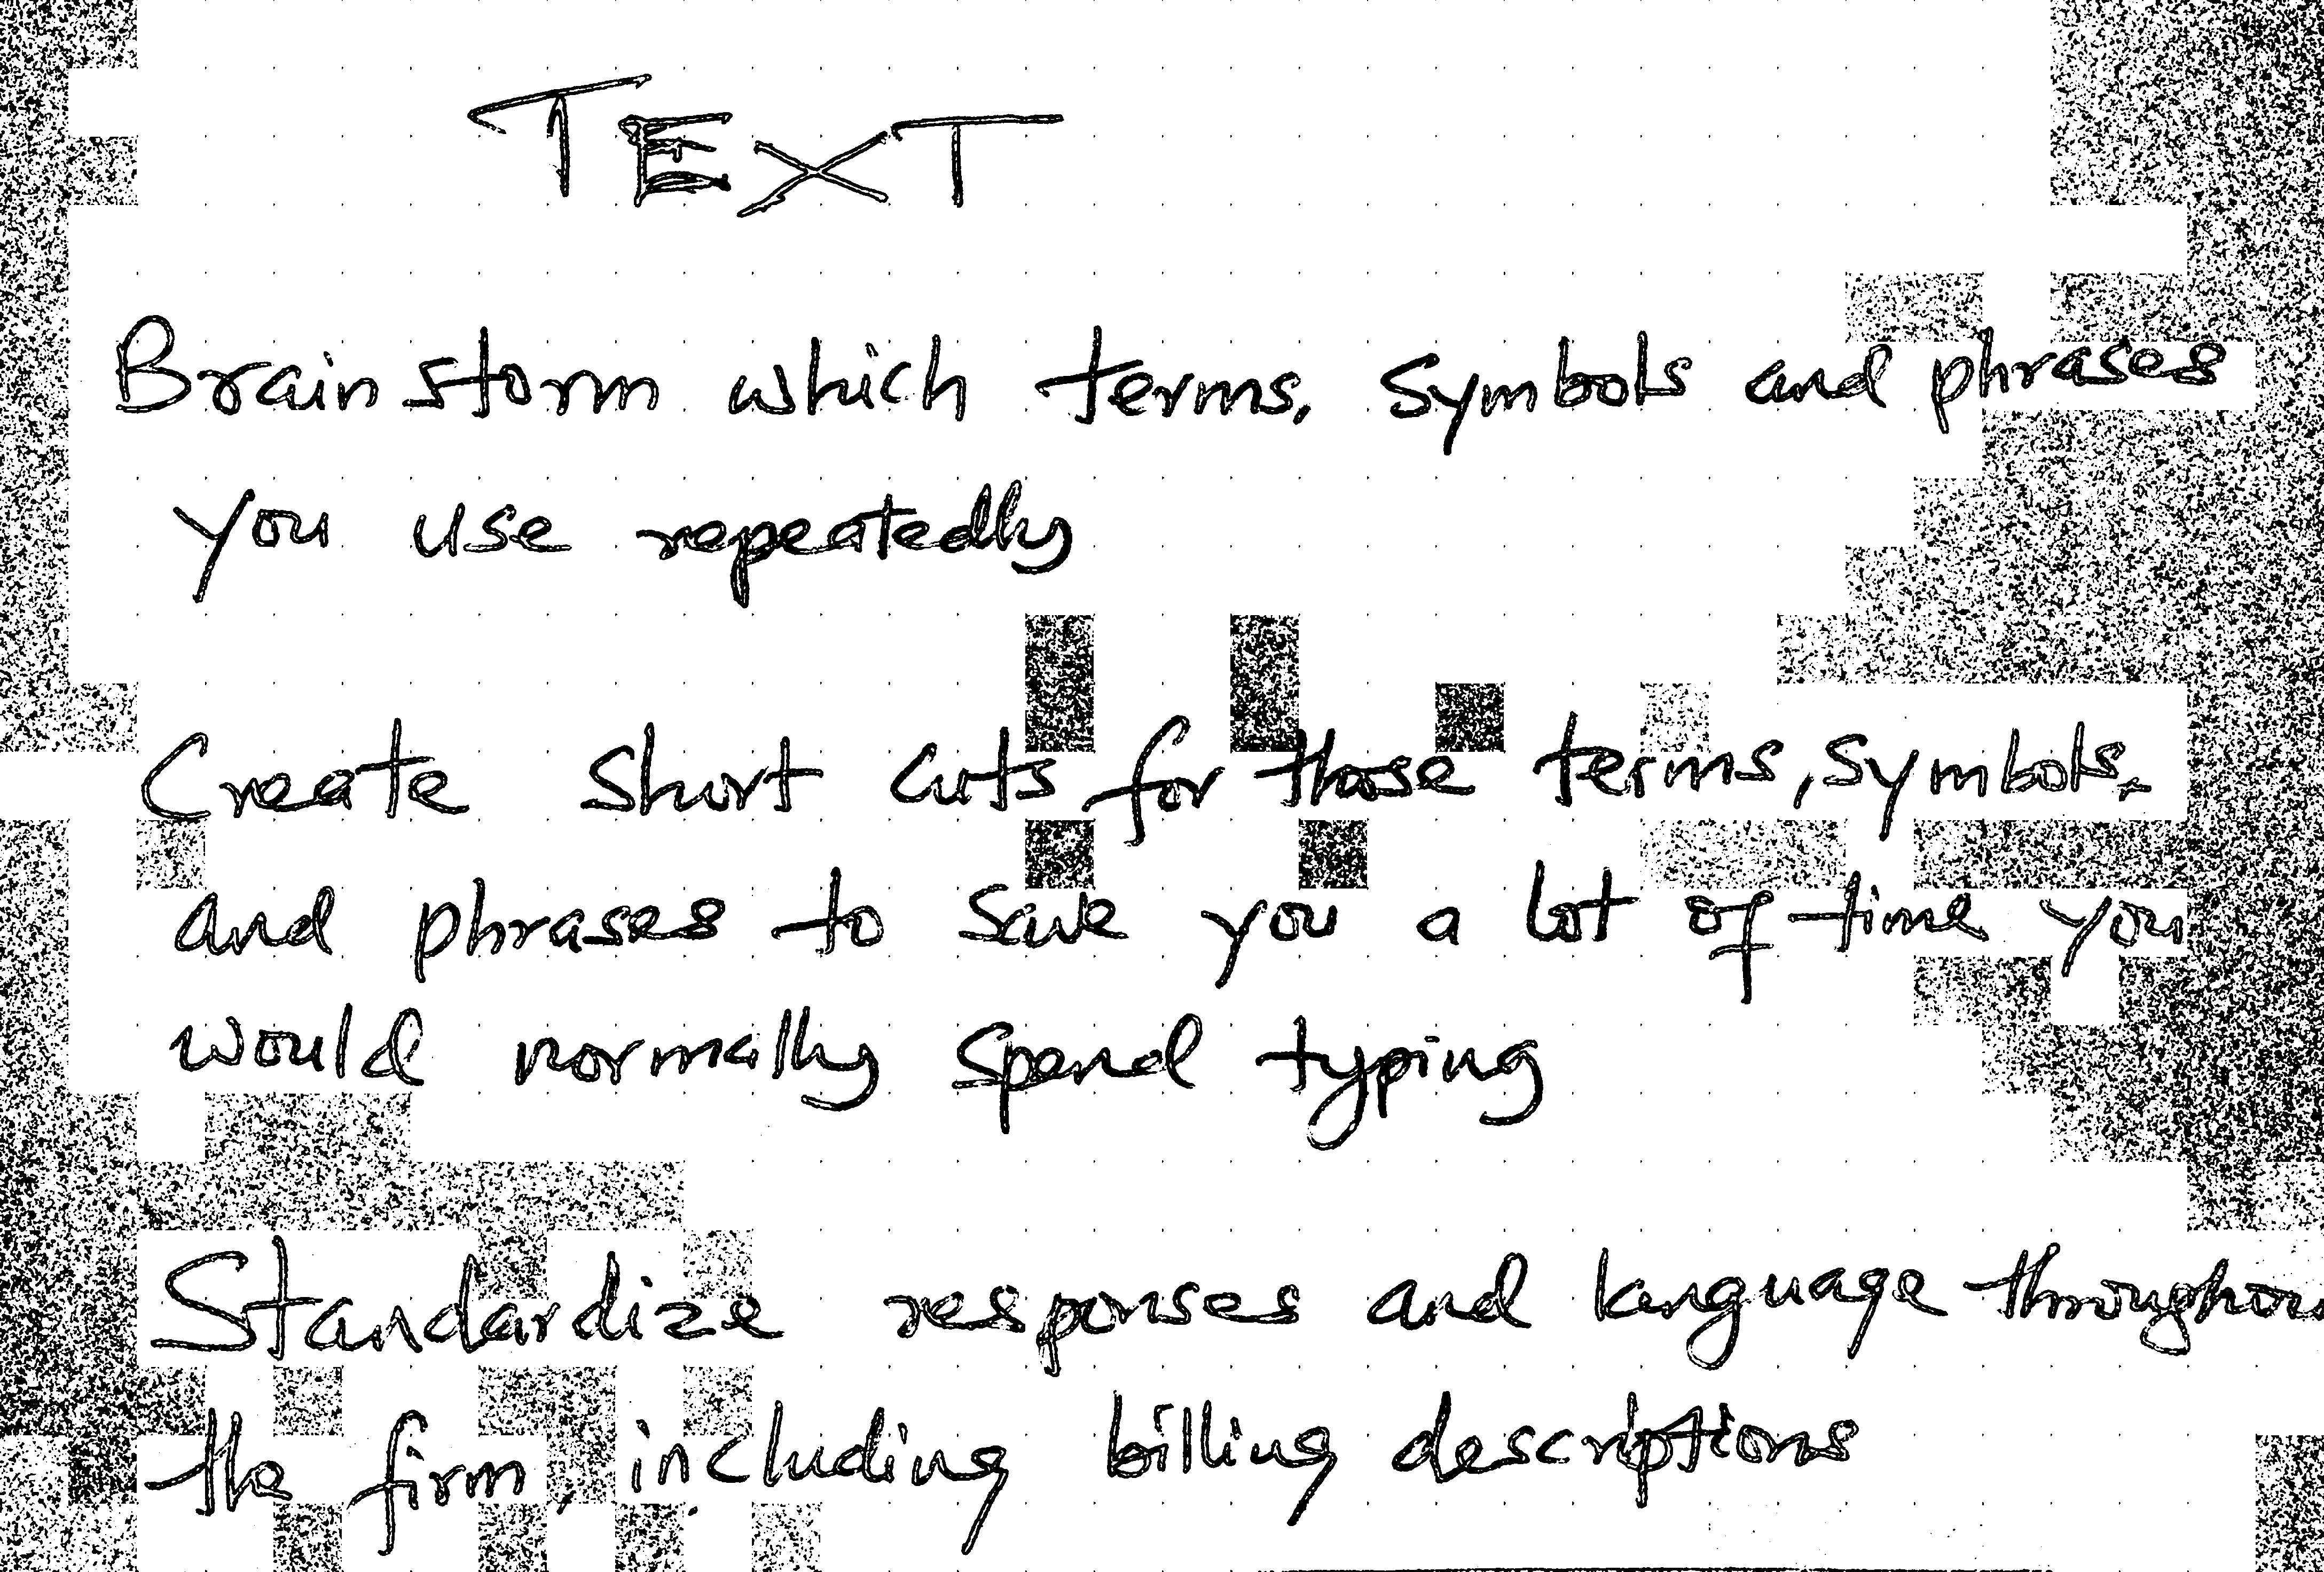 TEXT
Brainstorm which terms, symbols and phrases
you use repeatedly
Create short cuts for those terms, symbols,
and phrases to save you a lot of time you
would normally spend typing
Standardize responses and language throughou
the firm, including billing descriptions